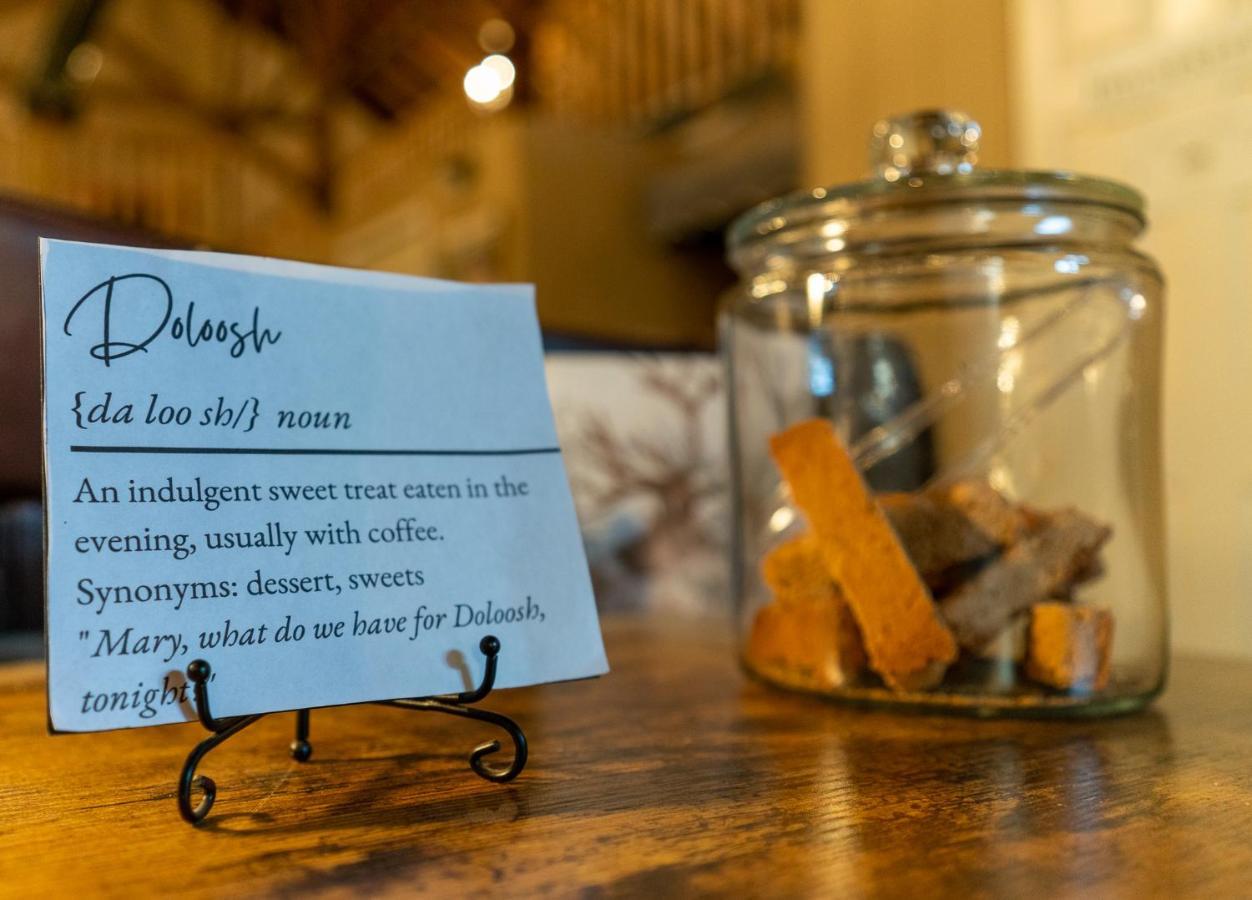 Doloosh
{da loo sh/} noun
An indulgent sweet treat eaten in the
evening, usually with coffee.
Synonyms: dessert, sweets
"Mary, what do we have for Doloosh,
tonight?"